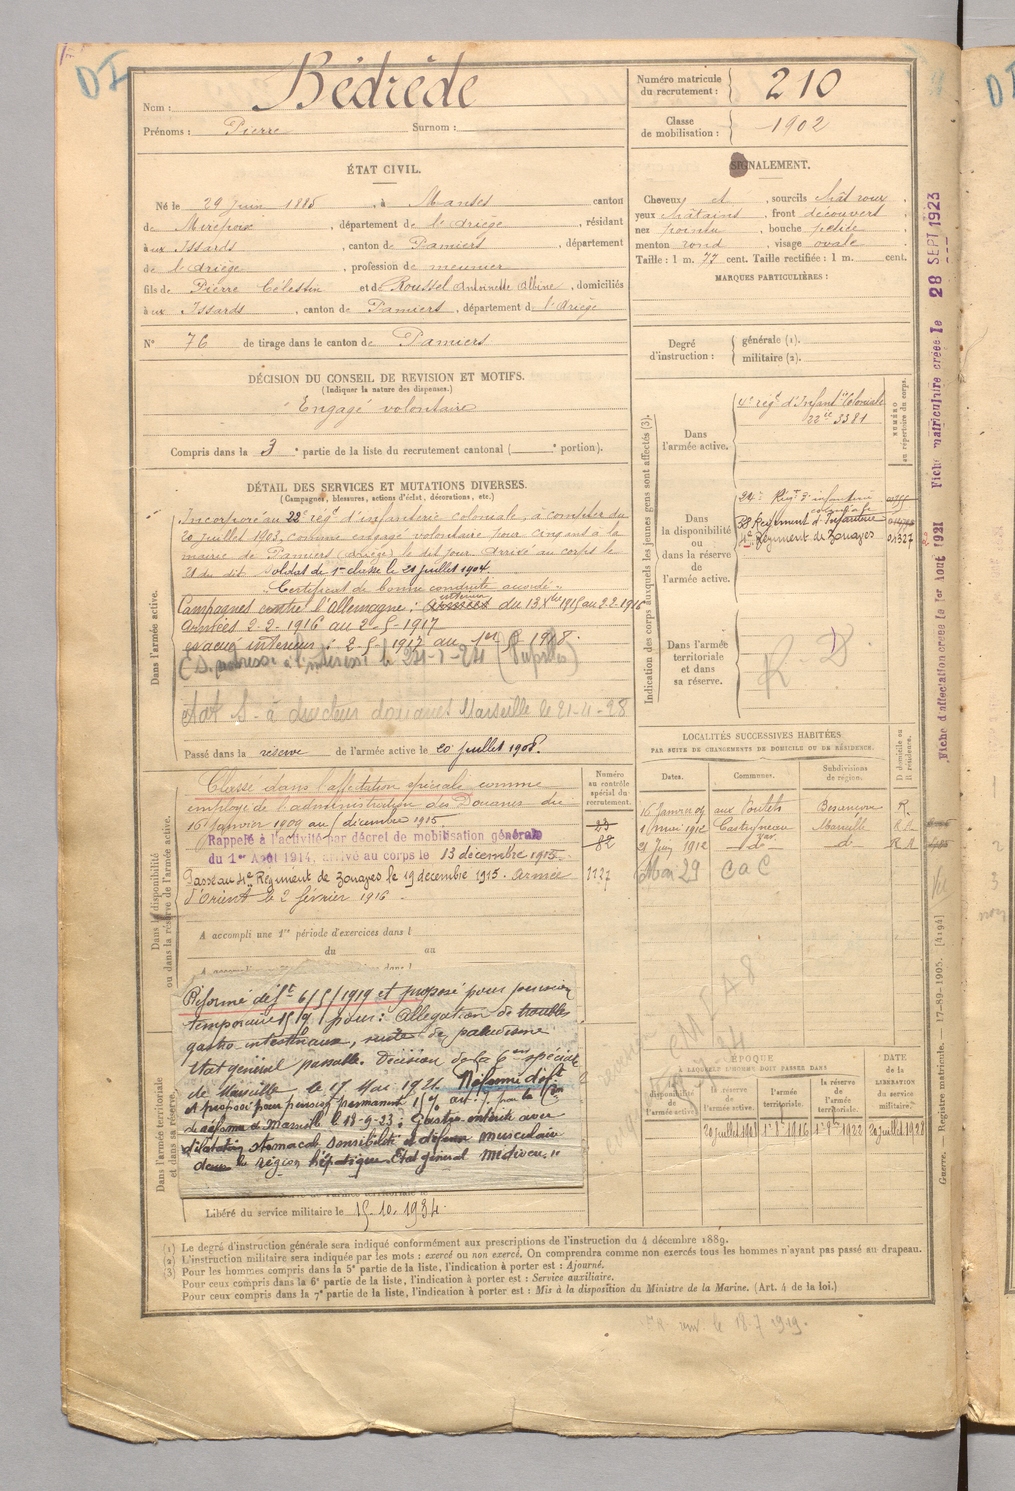 DI
Nom : Bédrède
Prénoms : Pierre Surnom :
Numéro matricule du recrutement : 210
Classe de mobilisation : 1902
ÉTAT CIVIL.
Né le 29 Juin 1885, à Manses canton
de Mirepoix, département de l'Ariège, résidant
à aux Issards, canton de Pamiers, département
de l'Ariège, profession de meunier
fils de Pierre Célestin et de Roussel Antoinette Albine, domiciliés
à aux Issards, canton de Pamiers, département de l'Ariège
N° 76 de tirage dans le canton de Pamiers
SIGNALEMENT.
Cheveux et, sourcils chât roux,
yeux châtains, front découvert
nez pointu, bouche petite,
menton rond, visage ovale
Taille : 1 m. 77 cent. Taille rectifiée : 1 m. cent.
MARQUES PARTICULIÈRES :
Degré d'instruction : générale (1).
militaire (2).
DÉCISION DU CONSEIL DE REVISION ET MOTIFS.
(Indiquer la nature des dispenses.)
Engagé volontaire
Compris dans la 3e partie de la liste du recrutement cantonal ( e portion).
DÉTAIL DES SERVICES ET MUTATIONS DIVERSES.
(Campagnes, blessures, actions d'éclat, décorations, etc.)
Dans l'armée active.
Incorporé au 22e régt d'infanterie coloniale, à compter du
20 juillet 1903, comme engagé volontaire pour cinq ans à la
mairie de Pamiers (Ariège) le dit jour. Arrivé au corps le
21 du dit. soldat de 1re classe le 21 juillet 1904.
Certificat de bonne conduite accordé.
Campagnes contre l'Allemagne : intérieur du 13 Xbre 1915 au 2.2.1916
Armées 2-2-1916 au 2-5-1917
évacué intérieur : 2-5-1917 au 1er 1918.
à l'intéressé le 24-1-24
état S. à directeur douanes Marseille le 21-4-28
Passé dans la réserve de l'armée active le 20 juillet 1908.
Dans la disponibilité ou dans la réserve de l'armée active.
Classé dans l'affectation spéciale comme
employé de l'administration des Douanes du
16 Janvier 1909 au décembre 1915.
Rappelé à l'activité par décret de mobilisation générale
du 1er Août 1914, arrivé au corps le 13 décembre 1915.
Passé au 4e Régiment de Zouaves le 19 décembre 1915. Armée
d'Orient le 2 février 1916.
A accompli une 1re période d'exercices dans l
du au
Numéro au contrôle spécial du recrutement.
23
82
1137
Réformé déft 6/5/1919 et proposé pour pension
temporaire pour : Allégation de troubles
gastro intestinaux, suite de paludisme
état général passable. Décision de la Con spéciale
de Marseille le 17 Mai 1921. Réformé déft
et proposé pour pension permanent par la Con
de réforme de Marseille le 18-9-23 : Gastro entérite avec
dilatation stomacale sensibilité et défense musculaire
dans la région hépatique. Etat général médiocre."
Dans l'armée territoriale et dans sa réserve.
Libéré du service militaire le 15.10.1934.
Indication des corps auxquels les jeunes gens sont affectés (3).
Dans l'armée active.
4e régt d'Infantie Coloniale
22e 3381
NUMÉRO au répertoire du corps.
Dans la disponibilité ou dans la réserve de l'armée active.
24e Régt d'infanterie coloniale
38 Régiment d'Infanterie
4e Régiment de Zouaves 01327
Dans l'armée territoriale et dans sa réserve.
R. D
LOCALITÉS SUCCESSIVES HABITÉES
PAR SUITE DE CHANGEMENTS DE DOMICILE OU DE RÉSIDENCE.
Dates. Communes. Subdivisions de région. D domicile ou R résidence.
16 Janvier 09 aux Pontets Besançon R.
1 mai 1912 Castigneau var. Marseille R.
21 Juin 1912 d° d° R.
Mai 29 CaC
ÉPOQUE
À LAQUELLE L'HOMME DOIT PASSER DANS
la disponibilité de l'armée active. la réserve de l'armée active. l'armée territoriale. la réserve de l'armée territoriale.
DATE de la LIBÉRATION du service militaire.
20 juillet 1908 1er 8bre 1916 1er 8bre 1922 20 juillet 1928
(1) Le degré d'instruction générale sera indiqué conformément aux prescriptions de l'instruction du 4 décembre 1889.
(2) L'instruction militaire sera indiquée par les mots : exercé ou non exercé. On comprendra comme non exercés tous les hommes n'ayant pas passé au drapeau.
(3) Pour les hommes compris dans la 5e partie de la liste, l'indication à porter est : Ajourné.
Pour ceux compris dans la 6e partie de la liste, l'indication à porter est : Service auxiliaire.
Pour ceux compris dans la 7e partie de la liste, l'indication à porter est : Mis à la disposition du Ministre de la Marine. (Art. 4 de la loi.)
le 18.7.1919.
Fiche d'affectation créée le 1er Août 1921 Fiche matriculaire créée le 28 SEPT 1923
Guerre. — Registre matricule. 17-89-1905. [4194]